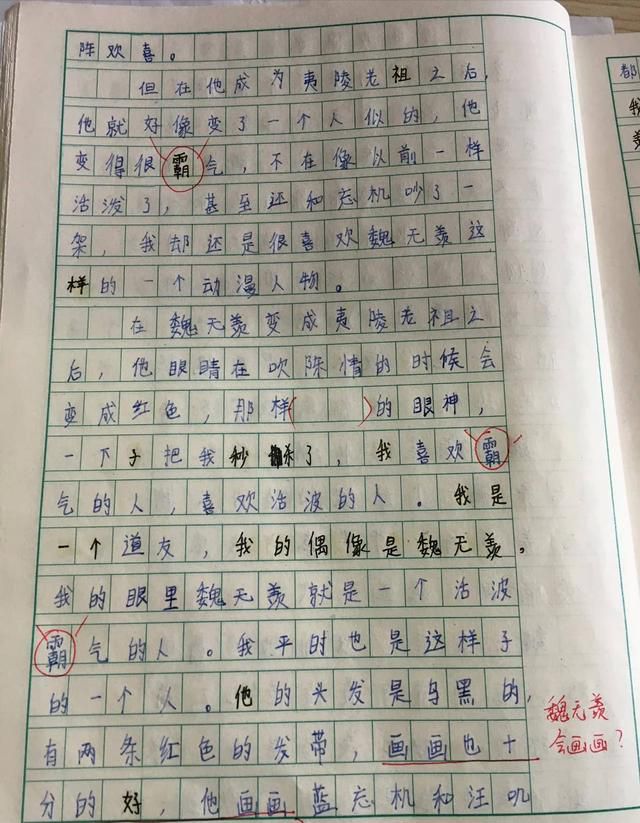 陈欢喜。
但在他成为夷陵老祖之后,
他就好像变了一个人似的,他
变得很霸气,不在像以前一样
活泼了,甚至还和忘机吵了一
架,我却还是很喜欢魏无羡这
样的一个动漫人物。
在魏无羡变成夷陵老祖之
后,他眼睛在吹陈情的时候会
变成红色,那样( )的眼神,
一下子把我秒杀了,我喜欢霸
气的人,喜欢活波的人。我是
一个道友,我的偶像是魏无羡。
我的眼里魏无羡就是一个活波
霸气的人。我平时也是这样子
的一个人。他的头发是乌黑的,
有两条红色的发带,画画也十
分的好,他画画蓝忘机和汪叽
魏无羡
会画画?
都
我
羡